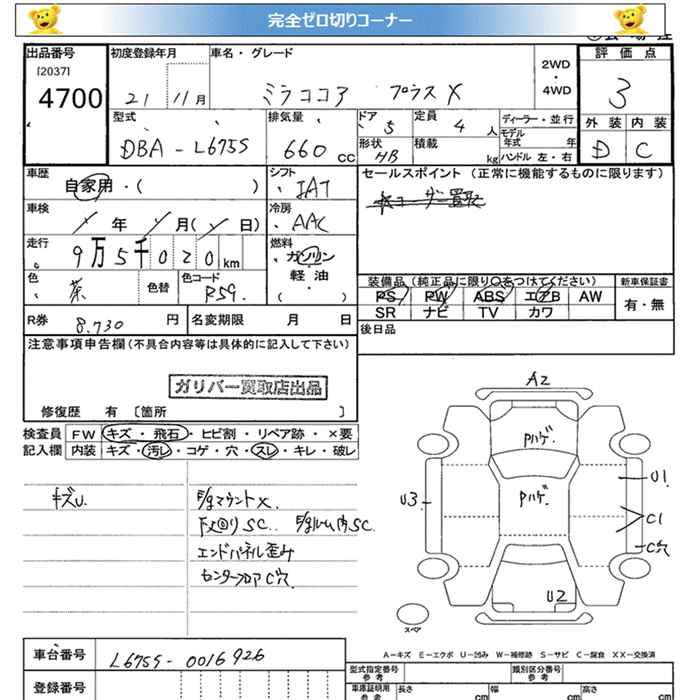 完全ゼロ切りコーナー
出品番号 初度登録年月 車名・グレード 評価点
[2037]
4700 21 11月 ミラココア プラス X 2WD・4WD 3
型式 排気量 ドア 5 定員 4 人 ディーラー・並行 外装 内装
モデル年式 年
DBA - L675S 660 cc 形状 HB 積載 kg ハンドル 左・右 D C
車歴 シフト セールスポイント (正常に機能するものに限ります)
自家用・( ) IAT
車検 年 月( 日) 冷房 AAC
走行 9万5千020km 燃料 ガソリン 軽油 ( )
色 茶 色替 色コード R59. 装備品(純正品に限り○をつけてください) 新車保証書
PS PW ABS エアB AW 有・無
SR ナビ TV カワ
R券 8.730 円 名変期限 月 日 後日品
注意事項申告欄(不具合内容等は具体的に記入して下さい)
ガリバー買取店出品
修復歴 有 〔箇所 〕
検査員 FW キズ・飛石・ヒビ割・リペア跡・×要
記入欄 内装 キズ・汚レ・コゲ・穴・スレ・キレ・破レ
キズU. E/gマウントX.
下廻りSC. E/gルーム内SC.
エンドパネル歪み
センターフロアC穴
A2
Pハゲ.
Pハゲ.
U3
U1
C1
C穴
U2
スペア
A-キズ E-エクボ U-凹み W-補修跡 S-サビ C-腐食 XX-交換済
車台番号 L675S-0016926
登録番号
型式指定番号 類別区分番号
参考 参考
車庫証明用 長さ cm 幅 cm 高さ cm
参考